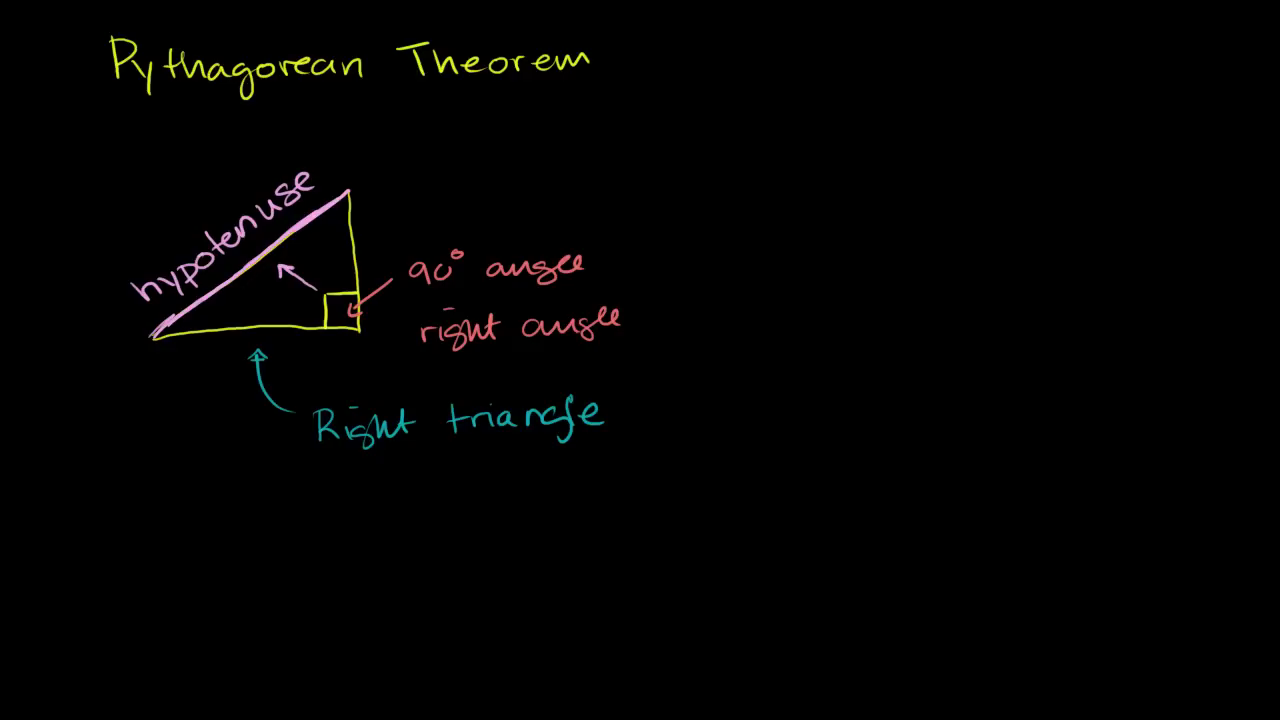 Pythagorean Theorem
hypotenuse
90° angle
right angle
Right triangle